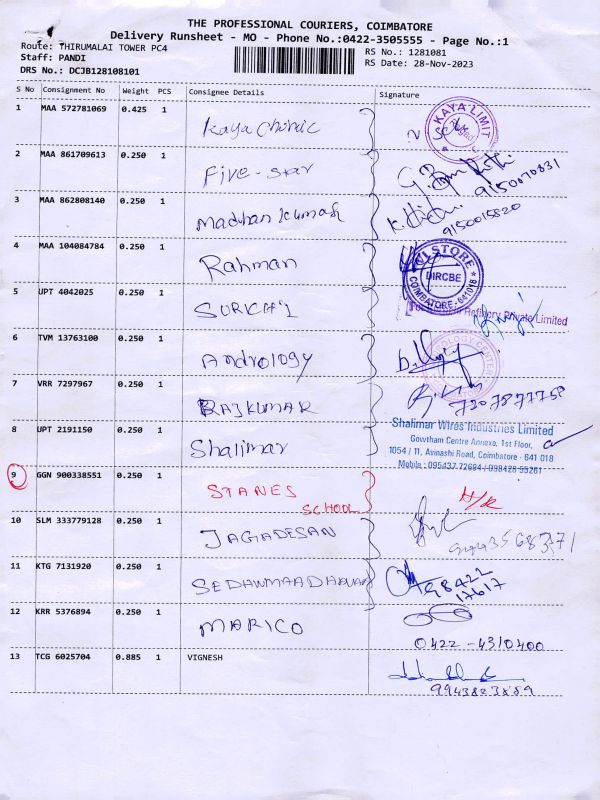 THE PROFESSIONAL COURIERS, COIMBATORE
Delivery Runsheet - MO - Phone No.:0422-3505555 - Page No.:1
Route: THIRUMALAI TOWER PC4
RS No.: 1281081
Staff: PANDI
RS Date: 28-Nov-2023
DRS No.: DCJB128108101
S No Consignment No Weight PCS Consignee Details Signature
1 MAA 572781069 0.425 1 Kaya KAYA LIMIT
2 MAA 861709613 0.250 1 Five-star
9150070831
3 MAA 862808140 0.250 1 Madhan Kumar
9150015820
4 MAA 104084784 0.250 1 Rahman STORE
DIRCBE
COIMBATORE-641018
5 UPT 4042025 0.250 1
Refinery Private Limited
6 TVM 13763100 0.250 1 Andrology
7 VRR 7297967 0.250 1 RAJKUMAR 7307877758
8 UPT 2191150 0.250 1 Shalimar Shalimar Wires Industries Limited
Gowtham Centre Annexe, 1st Floor,
1054 / 11, Avinashi Road, Coimbatore - 641 018
Mobile : 095437 72694 / 098428 55261
9 GGN 900338551 0.250 1 STANES
SCHOOL
10 SLM 333779128 0.250 1 JAGADESAN
11 KTG 7131920 0.250 1 98422
17617
12 KRR 5376894 0.250 1 MARICO
0422-4310400
13 TCG 6025704 0.885 1 VIGNESH